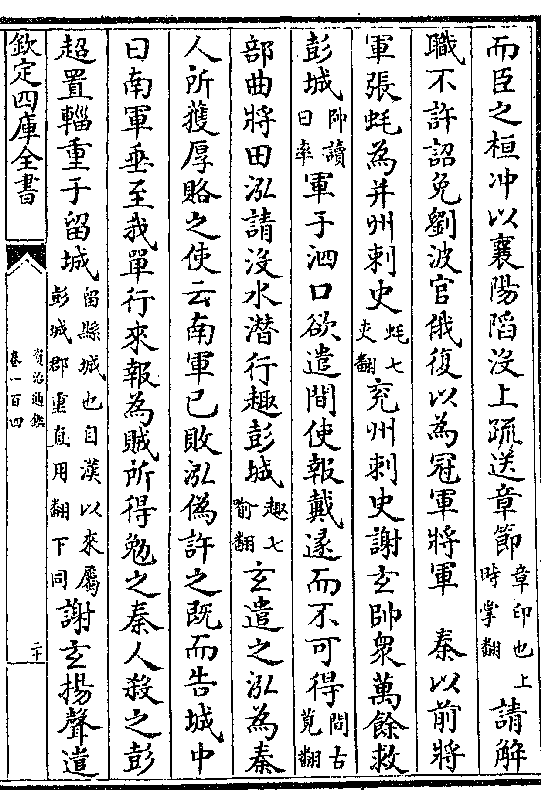 而臣之桓冲以襄陽陷沒上疏送章節章印也上時掌翻請解
職不許詔免劉波官俄復以為冠軍將軍　秦以前將
軍張蚝為并州刺史蚝七吏翻兖州刺史謝玄帥衆萬餘救
彭城帥讀曰率軍于泗口欲遣間使報戴逯而不可得間古莧翻
部曲將田泓請沒水潜行趣彭城趣七喻翻玄遣之泓為秦
人所獲厚賂之使云南軍已敗泓偽許之既而告城中
曰南軍垂至我單行來報為賊所得勉之秦人殺之彭
超置輜重于留城留縣城也自漢以來屬彭城郡重直用翻下同謝玄揚聲遣
欽定四庫全書
資治通鑑
卷一百四
二十